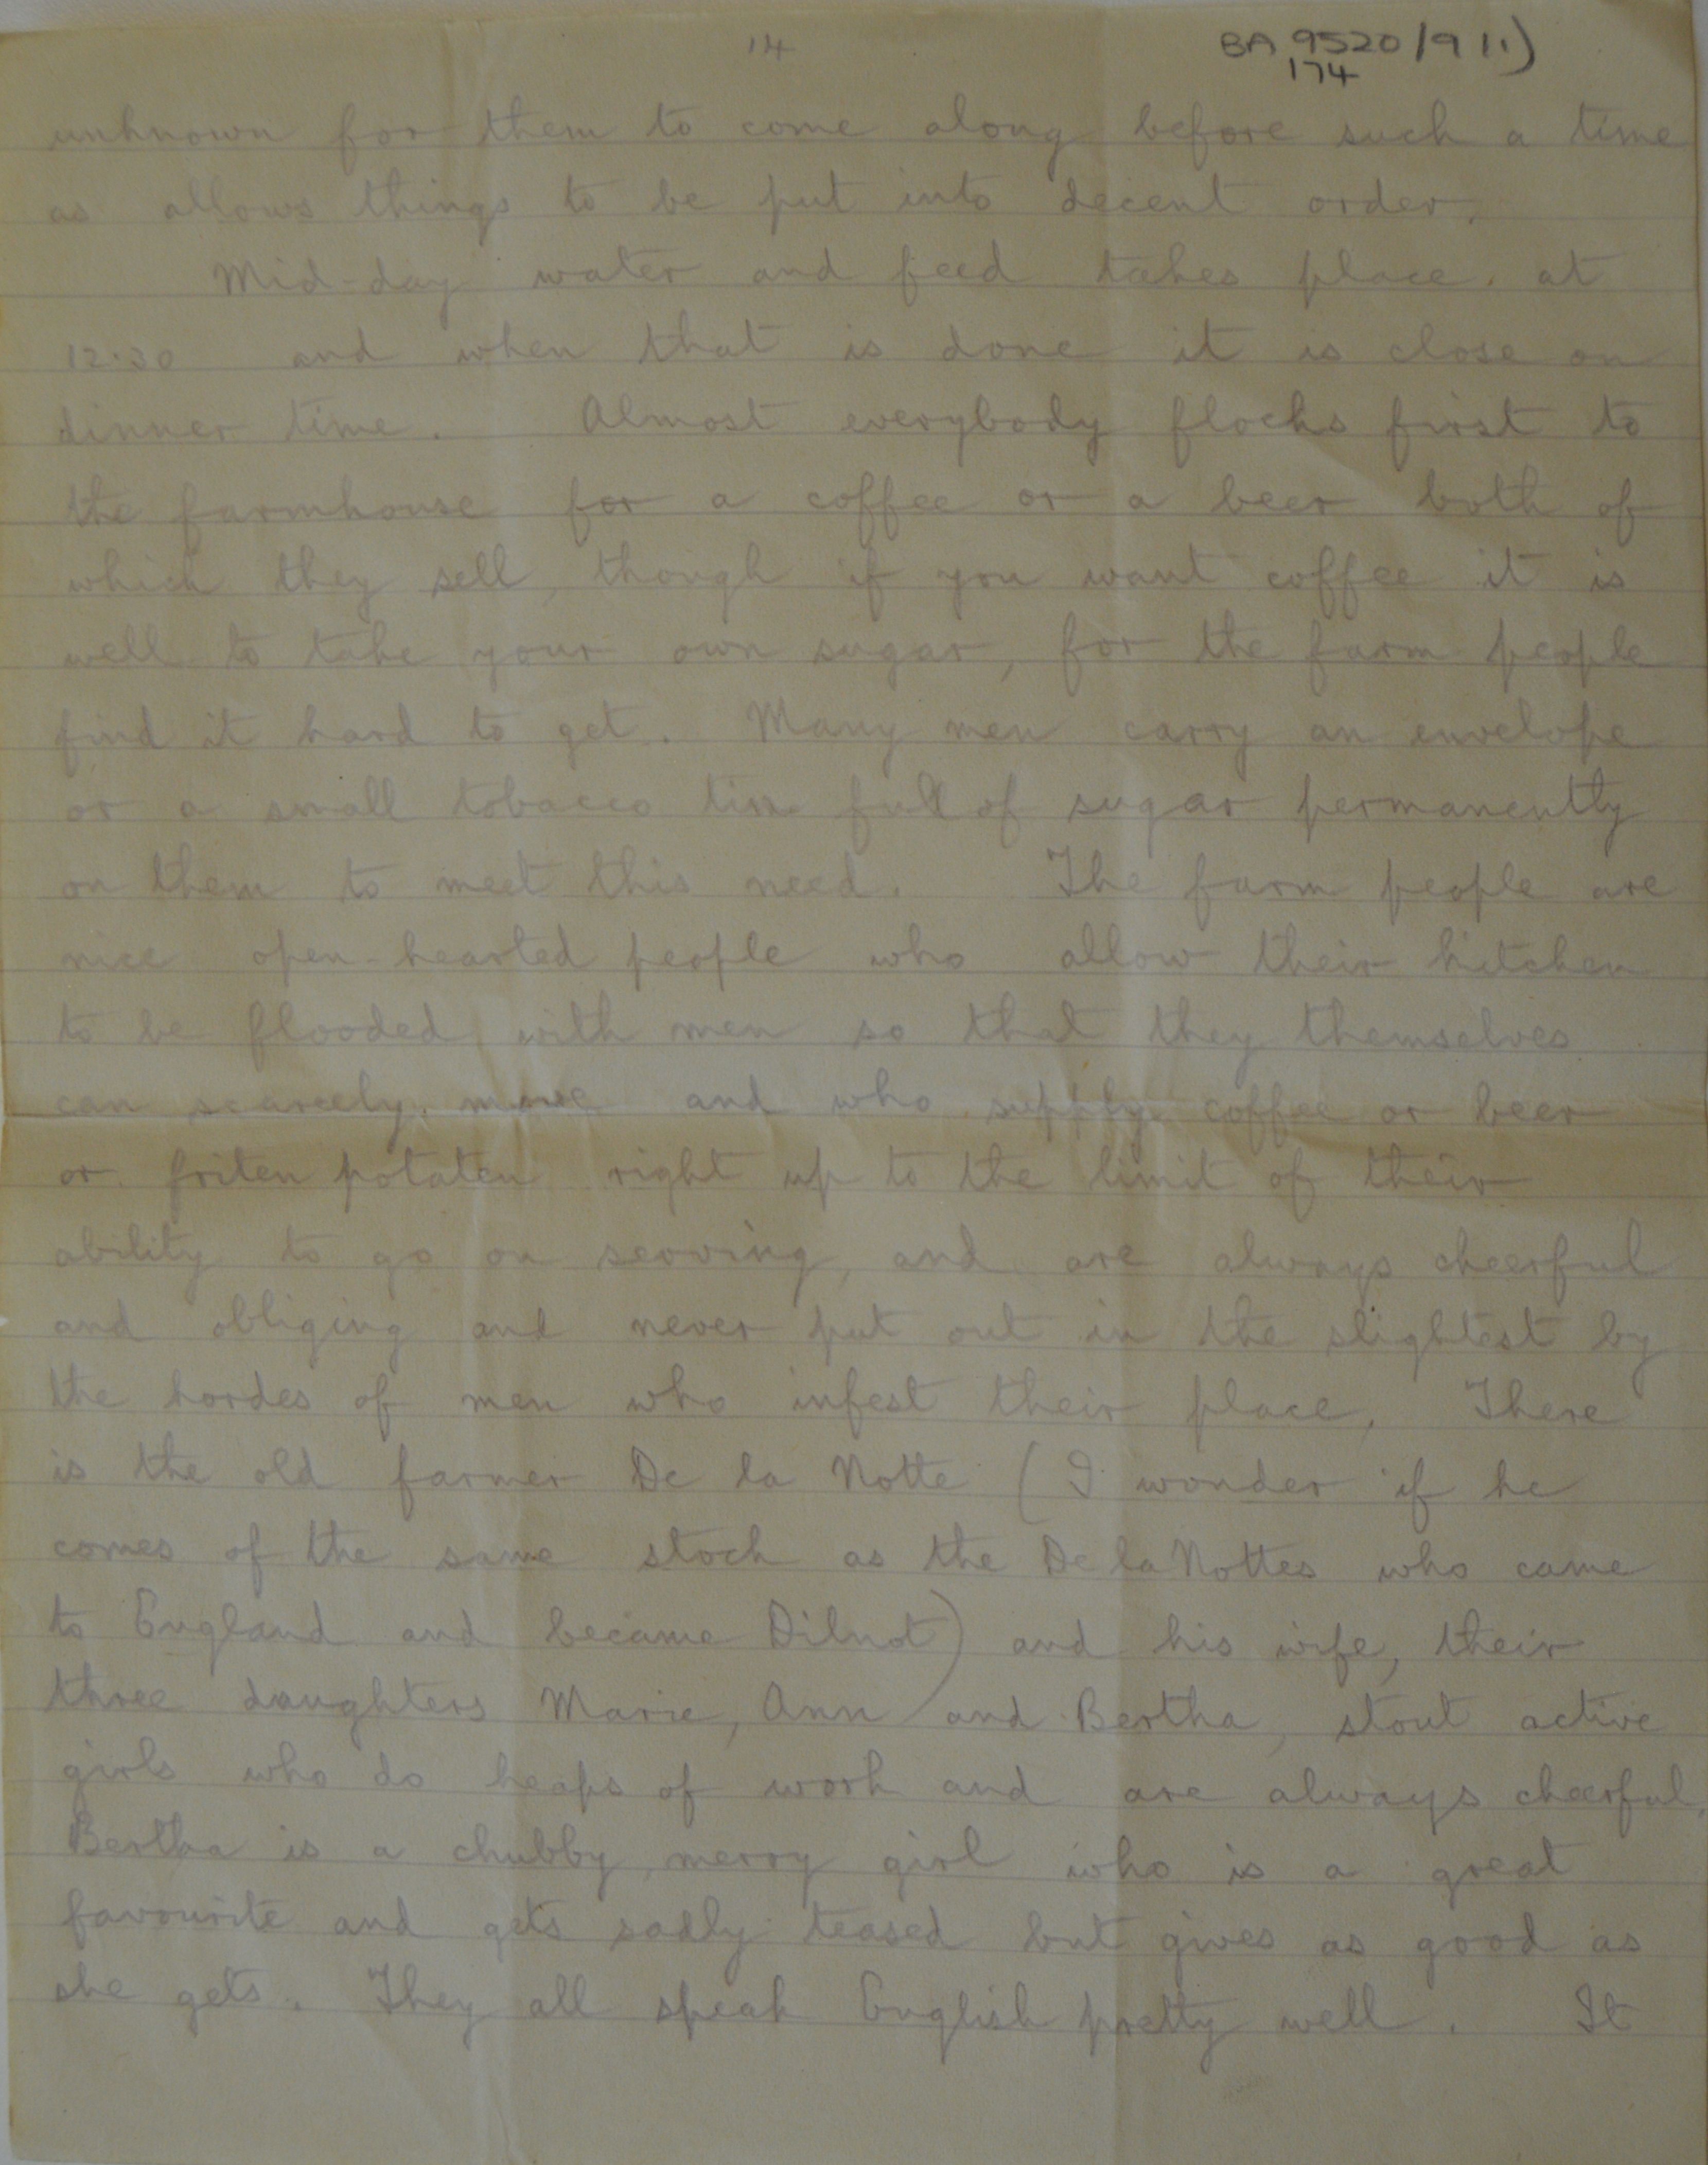 14
BA 9520/9 (1)
174
unknown for them to come along before such a time
as allows things to be put into decent order.
Mid-day water and feed takes place at
12.30 and when that is done it is close on
dinner time. Almost everybody flocks first to
the farmhouse for a coffee or a beer both of
which they sell, though if you want coffee it is
well to take your own sugar, for the farm people
find it hard to get. Many men carry an envelope
or a small tobacco tin full of sugar permanently
on them to meet this need. The farm people are
nice open-hearted people who allow their kitchen
to be flooded with men so that they themselves
can scarcely move and who supply coffee or beer
or friten potaten right up to the limit of their
ability to go on serving, and are always cheerful
and obliging and never put out in the slightest by
the hordes of men who infest their place. There
is the old farmer De la Notte (I wonder if he
comes of the same stock as the De la Nottes who came
to England and became Dilnot) and his wife, their
three daughters Marie, Ann and Bertha, stout active
girls who do heaps of work and are always cheerful.
Bertha is a chubby, merry girl who is a great
favourite and gets sadly teased but gives as good as
she gets. They all speak English pretty well. It